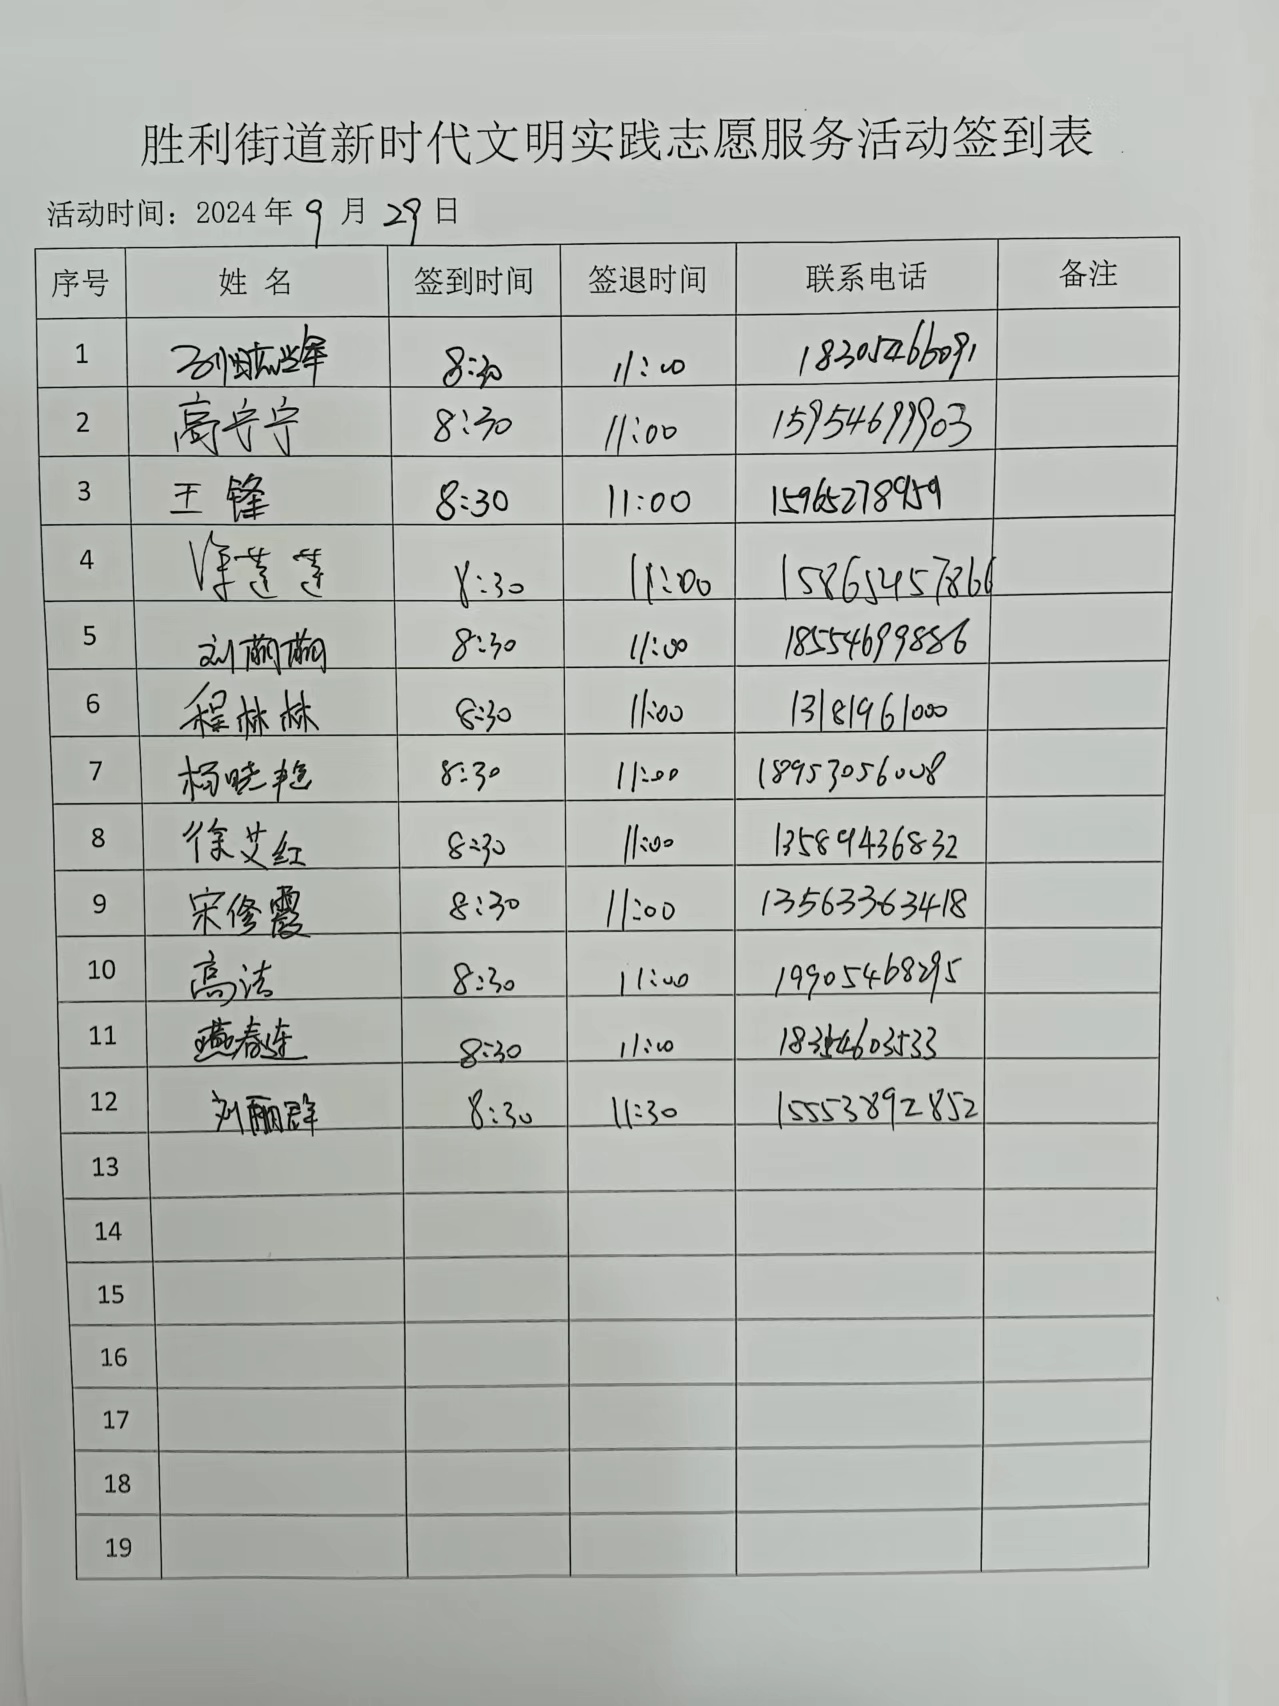 胜利街道新时代文明实践志愿服务活动签到表
活动时间：2024年9月29日
序号 姓 名 签到时间 签退时间 联系电话 备注
1 8:30 11:00 18305466091
2 高宁宁 8:30 11:00 15954699903
3 王锋 8:30 11:00 15965278959
4 徐莲莲 8:30 11:00 15865457866
5 刘萌萌 8:30 11:00 18554699886
6 程林林 8:30 11:00 13181961000
7 杨晓艳 8:30 11:00 18953056008
8 徐艾红 8:30 11:00 13589436832
9 宋修霞 8:30 11:00 13563363418
10 高洁 8:30 11:00 19905468295
11 燕春连 8:30 11:00
12 刘丽群 8:30 11:30 15553892852
13
14
15
16
17
18
19